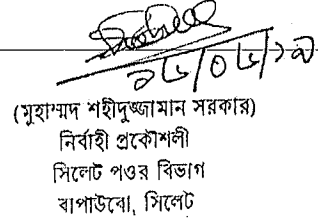 (মুহাম্মদ শহীদুজ্জামান সরকার)
নির্বাহী প্রকৌশলী
সিলেট পওর বিভাগ
বাপাউবো, সিলেট